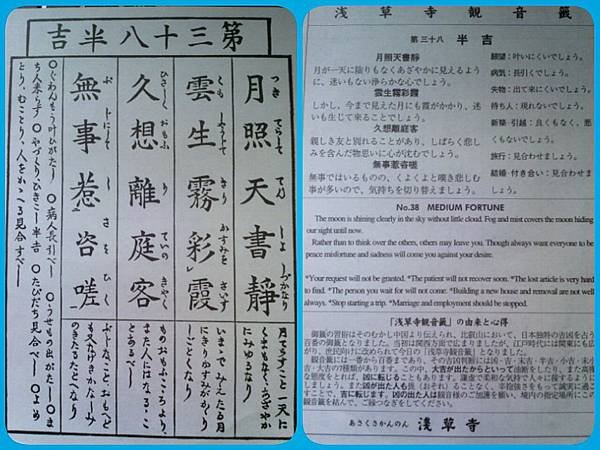 第三十八半吉
月照天書靜
つき
てらして
てん
しよ
しづかなり
月てらすこと一天に
くまもなくあざやか
にみゆるなり
雲生霧彩霞
くも
しやうして
きり
かすみを
さいす
いままでみえたる月
にきりかすみがかくり
しごとくなり
久想離庭客
ひさしく
おもふ
り
ていの
きやく
ものおもふこころより、
また人にはなるゝこ
とあるべし
無事惹咨嗟
ぶ
じにして
さ
ひく
ぶじなること、おもへど
も又なげきかなしみ
のきたるたとへなり
〇ぐわんもう叶ひがたし 〇病人長引べし 〇うせもの出がたし 〇ま
ち人来らず 〇やづくり、ひきこし半吉 〇たびだち見合べし 〇よめ
とり、むことり、人をかゝへる見合すべし
浅草寺観音籤
第三十八 半吉
月照天書靜
月が一天に陰りもなくあざやかに見えるよ
うに、迷いもない浄らかな心でしょう。
雲生霧彩霞
しかし、今まで見えた月にも霞がかかり、迷
いも生じて来ることでしょう。
久想離庭客
親しき友と別れることがあり、しばらく悲し
みを含んだ物思いに心が沈むでしょう。
無事惹咨嗟
無事ではいるものの、くよくよと嘆き悲しむ
事が多いので、気持ちを切り替えましょう。
願望：叶いにくいでしょう。
病気：長引くでしょう。
失物：出て来にくいでしょう。
待ち人：現れないでしょう。
新築・引越：良くもなく、悪
くもないでしょう。
旅行：見合わせましょう。
結婚・付き合い：見合わせましょ
う。
No.38 MEDIUM FORTUNE
The moon is shining clearly in the sky without little cloud. Fog and mist covers the moon hiding
our sight until now.
Rather than to think over the others, others may leave you. Though always want everyone to be
peace misfortune and sadness will come you against your desire.
*Your request will not be granted. *The patient will not recover soon. *The lost article is very hard
to find. *The person you wait for will not come. *Building a new house and removal are not well
always. *Stop starting a trip. *Marriage and employment should be stopped.
「浅草寺観音籤」の由来と心得
御籤の習俗はそのむかし中国より伝えられ、比叡山において、日本独特の吉凶を占う
百番の御籤となりました。当初は関西方面で広まりましたが、江戸時代には関東にも広
がり、世民向けに改められて今日の「浅草寺観音籤」となりました。
観音籤には一番から百番まであり、その吉凶判断には凶・吉・末吉・半吉・小吉・末小
吉・大吉の7種類があります。この中、大吉が出たからといって油断をしたり、また高慢
な態度をとれば、凶に転じることもあります。謙虚で柔和な気持で人々に接するように
しましょう。また凶が出た人も畏（おそ）れることなく、辛抱強さをもって誠実に過ご
すことで、吉に転じます。凶の出た人は観音様のご加護を願い、境内の指定場所にこの
観音籤を結んで、ご縁つなぎをしてください。
あさくさかんのん 浅草寺